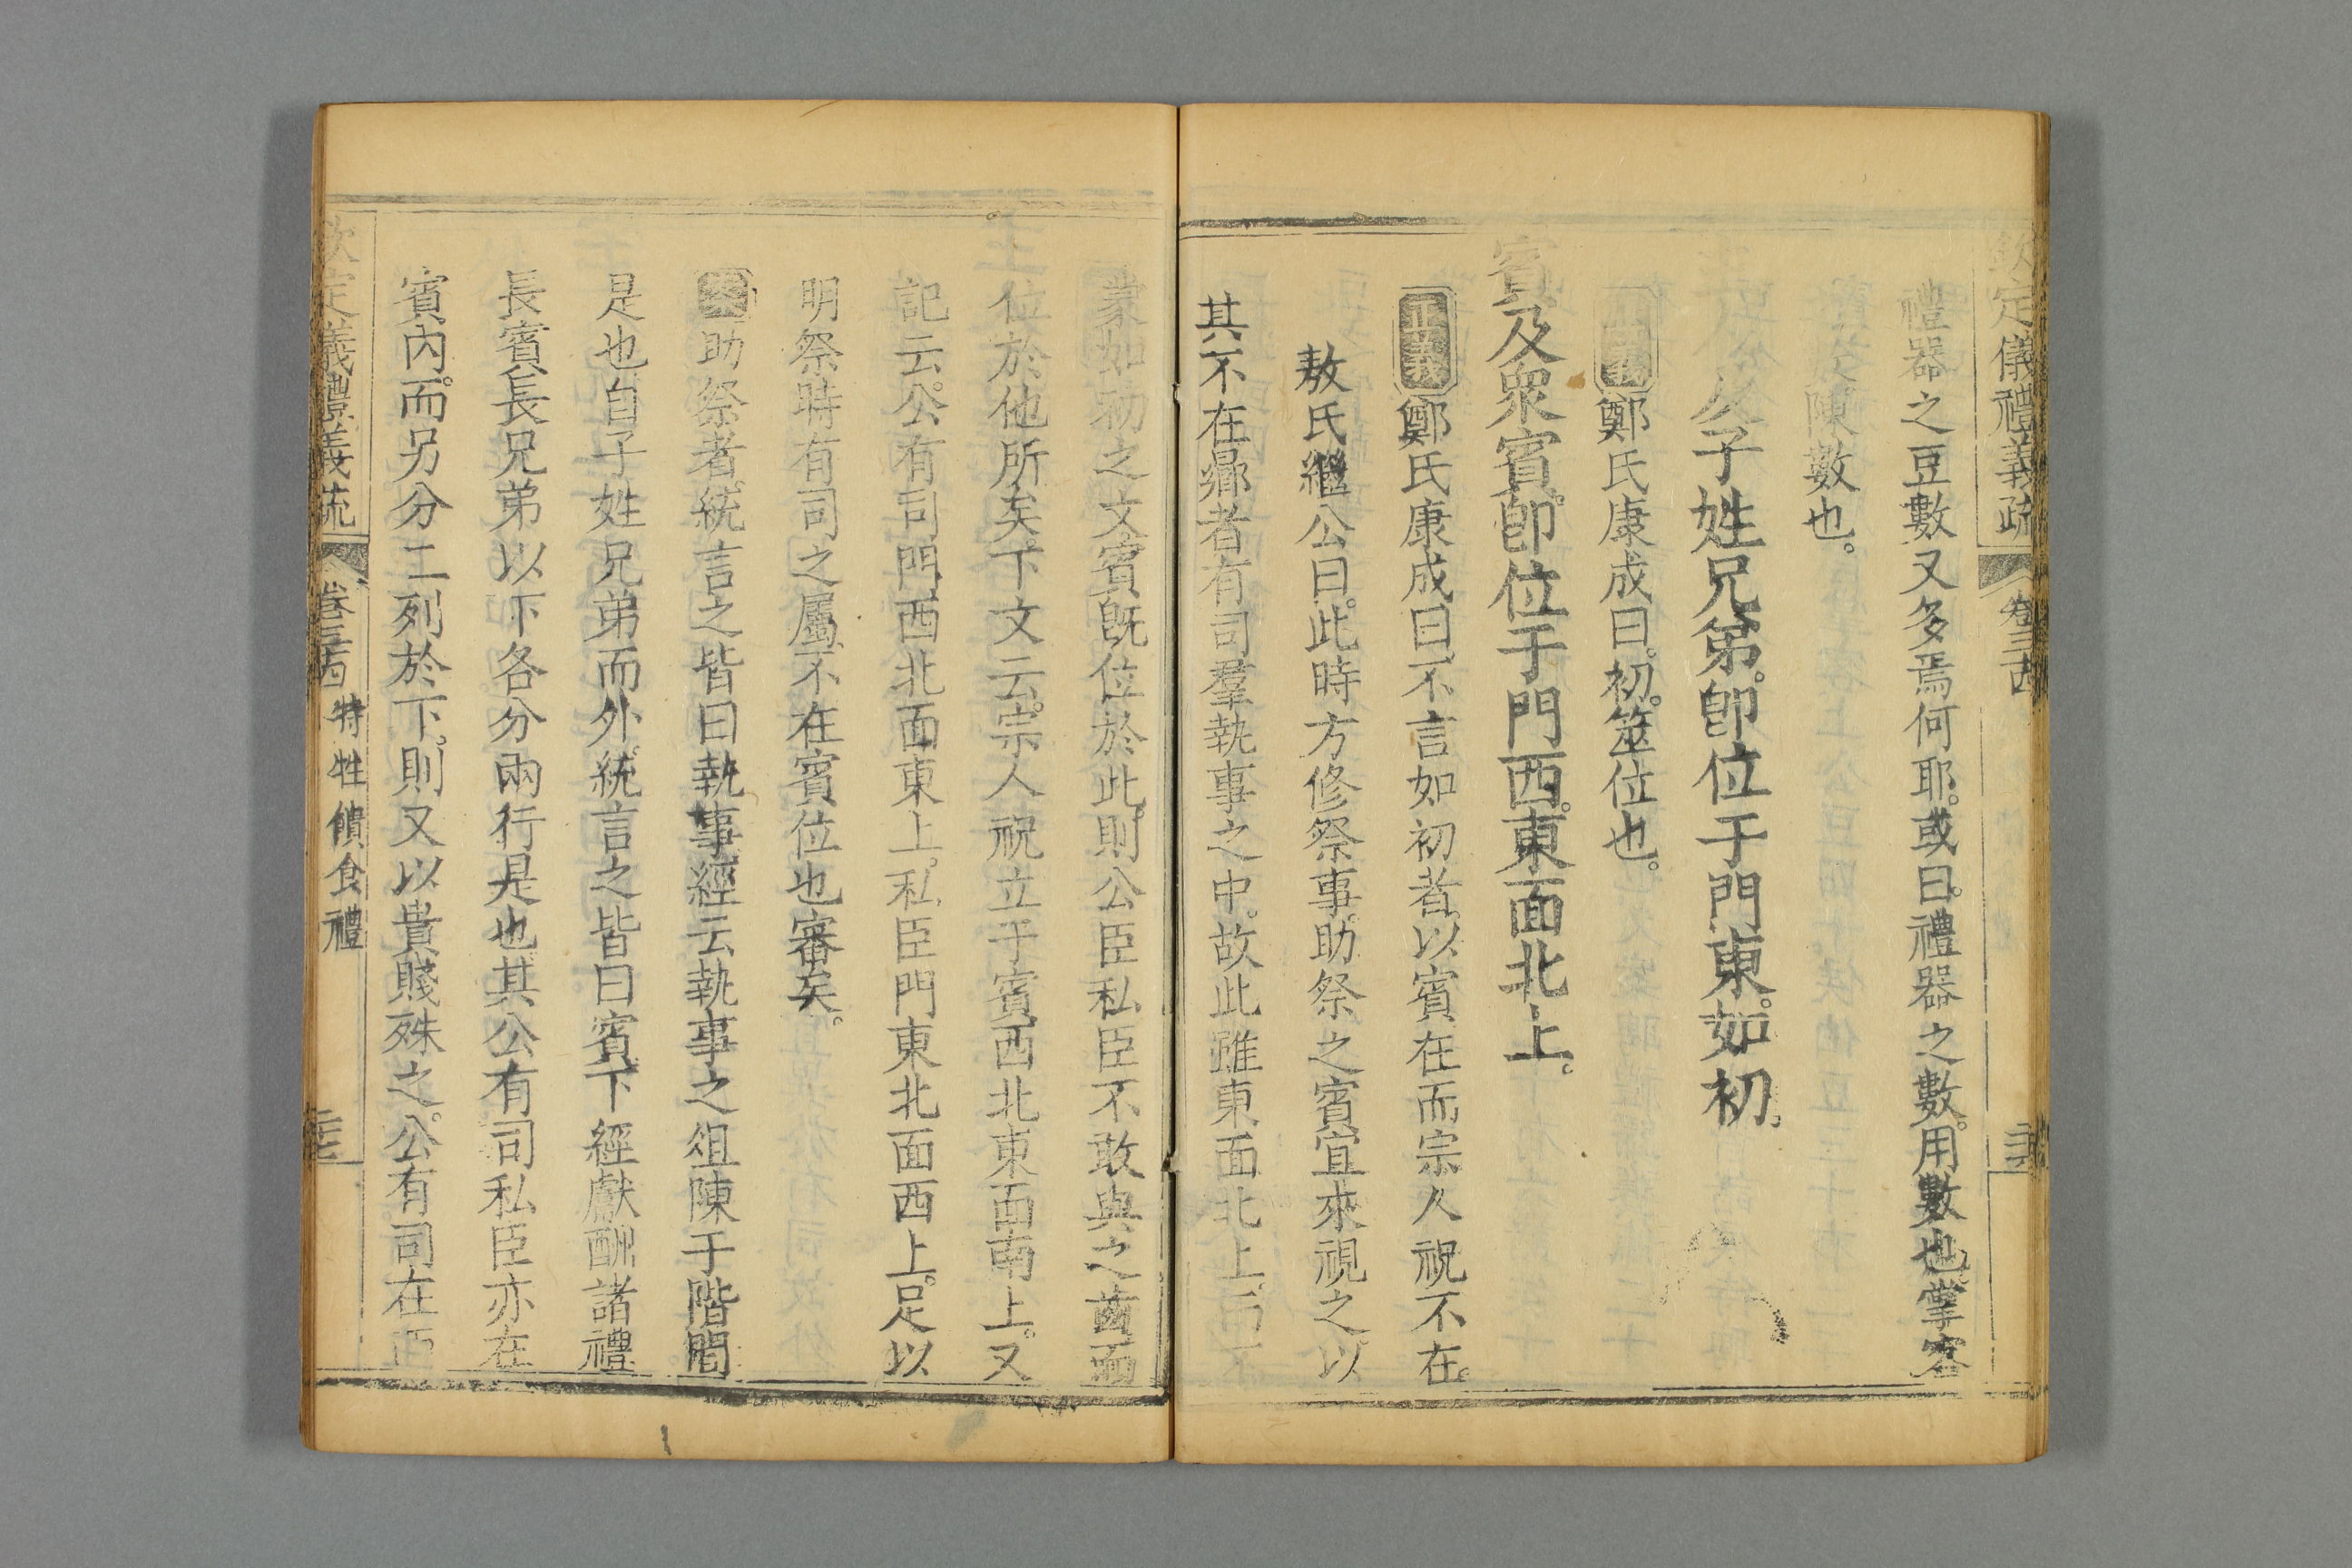 欽定儀禮義疏 卷三十四
禮器之豆數又多焉何耶。或曰。禮器之數。用數也。掌客
陳數也。
及子姓兄弟。卽位于門東。如初。
正義 鄭氏康成曰。初。筮位也。
賓及衆賓。卽位于門西。東面北上。
正義 鄭氏康成曰。不言如初者。以賓在而宗人祝不在。
敖氏繼公曰。此時方修祭事。助祭之賓宜來視之。以
其不在鼏者有司羣執事之中。故此雖東面北上。
蒙如初之文。賓旣位於此。則公臣私臣不敢與之齒而
位於他所矣。下文云。宗人祝立于賓西北東面南上。又
記云。公有司門西北面東上。私臣門東北面西上。足以
明祭時有司之屬。不在賓位也審矣。
案 助祭者。統言之皆曰執事。經云執事之俎陳于階間
是也。自子姓兄弟而外。統言之皆曰賓。下經獻酬諸禮
長賓長兄弟以下各分兩行是也。其公有司私臣亦在
賓內。而另分二列於下。則又以貴賤殊之。公有司在
欽定儀禮義疏 卷三十四 特牲饋食禮